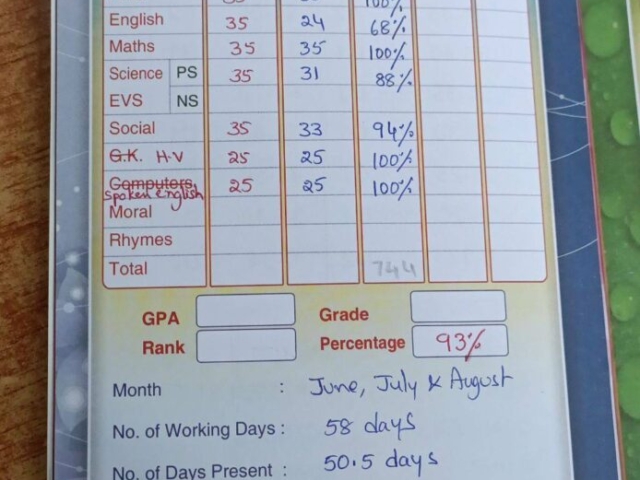 100%
English 35 24 68%
Maths 35 35 100%
Science PS 35 31 88%
EVS NS
Social 35 33 94%
G.K. H.V 25 25 100%
Computers 25 25 100%
Spoken english
Moral
Rhymes
Total 744
GPA Grade
Rank Percentage 93%
Month : June, July & August
No. of Working Days : 58 days
No. of Days Present : 50.5 days